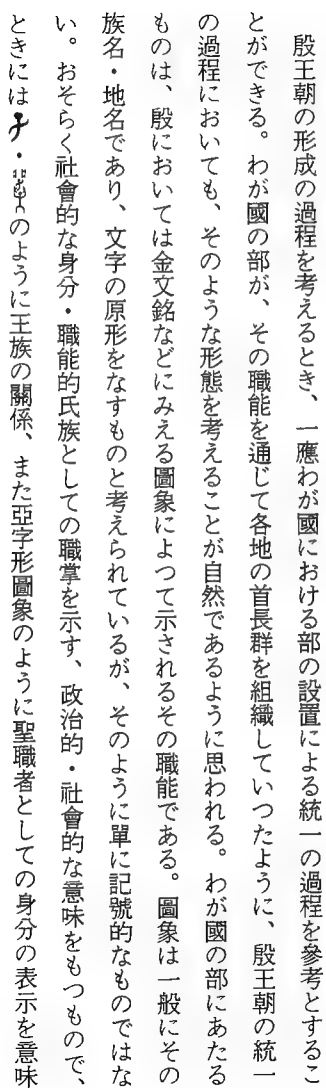 殷王朝の形成の過程を考えるとき、一應わが國における部の設置による統一の過程を參考とするこ
とができる。わが國の部が、その職能を通じて各地の首長群を組織していつたように、殷王朝の統一
の過程においても、そのような形態を考えることが自然であるように思われる。わが國の部にあたる
ものは、殷においては金文銘などにみえる圖象によつて示されるその職能である。圖象は一般にその
族名・地名であり、文字の原形をなすものと考えられているが、そのように單に記號的なものではな
い。おそらく社會的な身分・職能的氏族としての職掌を示す、政治的・社會的な意味をもつもので、
ときには・のように王族の關係、また亞字形圖象のように聖職者としての身分の表示を意味